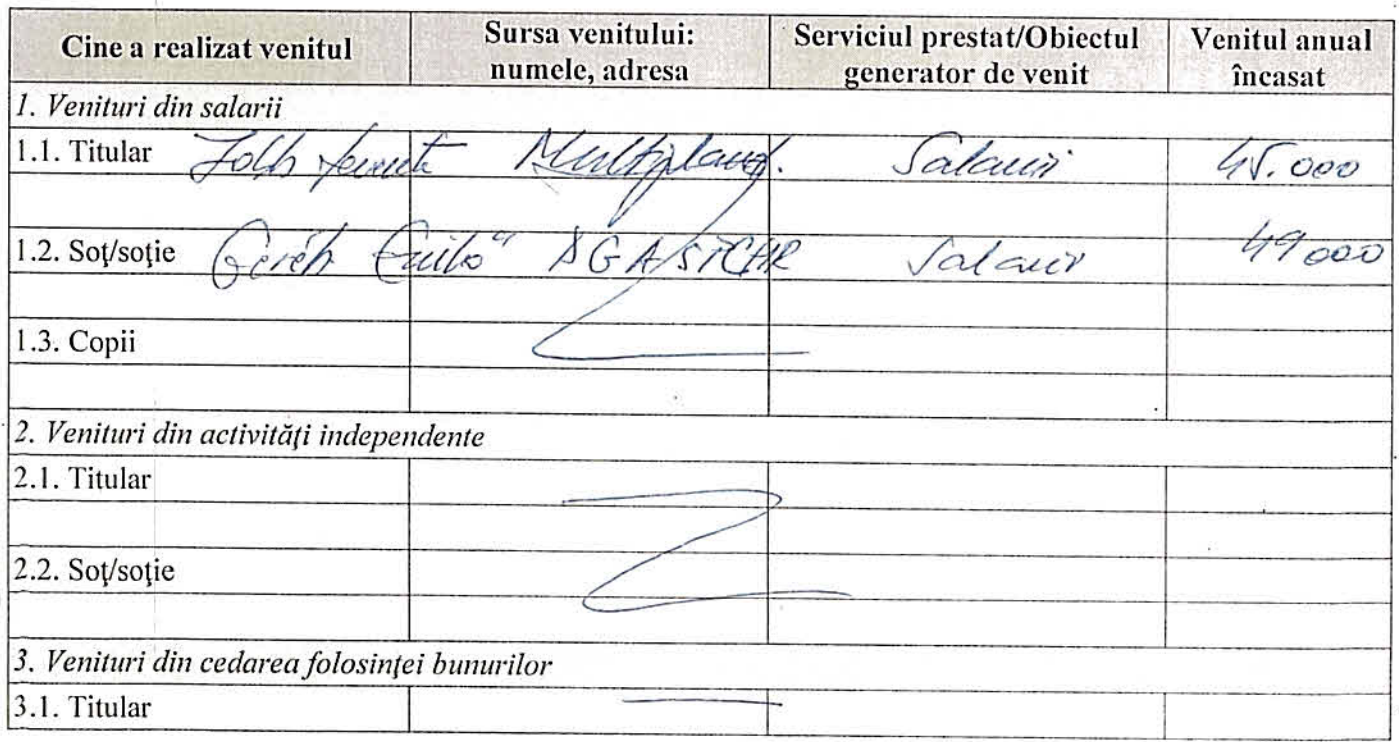 Cine a realizat venitul
Sursa venitului:
numele, adresa
Serviciul prestat/Obiectul
generator de venit
Venitul anual
încasat
1. Venituri din salarii
1.1. Titular Salarii 45.000
1.2. Soţ/soţie Salarii 49000
1.3. Copii
2. Venituri din activităţi independente
2.1. Titular
2.2. Soţ/soţie
3. Venituri din cedarea folosinţei bunurilor
3.1. Titular